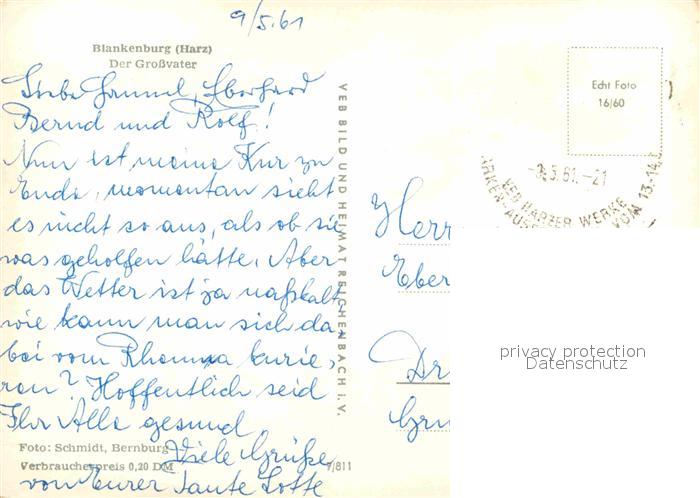 9/5.61
Blankenburg (Harz)
Der Großvater
Liebe Hannel, Eberhard
Bernd und Rolf!
Nun ist meine Kur zu
Ende, momentan sieht
es nicht so aus, als ob sie
was geholfen hätte. Aber
das Wetter ist ja naßkalt,
wie kann man sich da
bei vom Rheuma kurie,
ren? Hoffentlich seid
Ihr Alle gesund.
Viele Grüße
von Eurer Tante Lotte
Foto: Schmidt, Bernburg
Verbraucherpreis 0,20 DM
7/811
VEB BILD UND HEIMAT REICHENBACH i. V.
Echt Foto
16/60
5.61.-21
VEB HARZER WERKE
VOM 13.-14.
Herr
Eber
privacy protection
Datenschutz